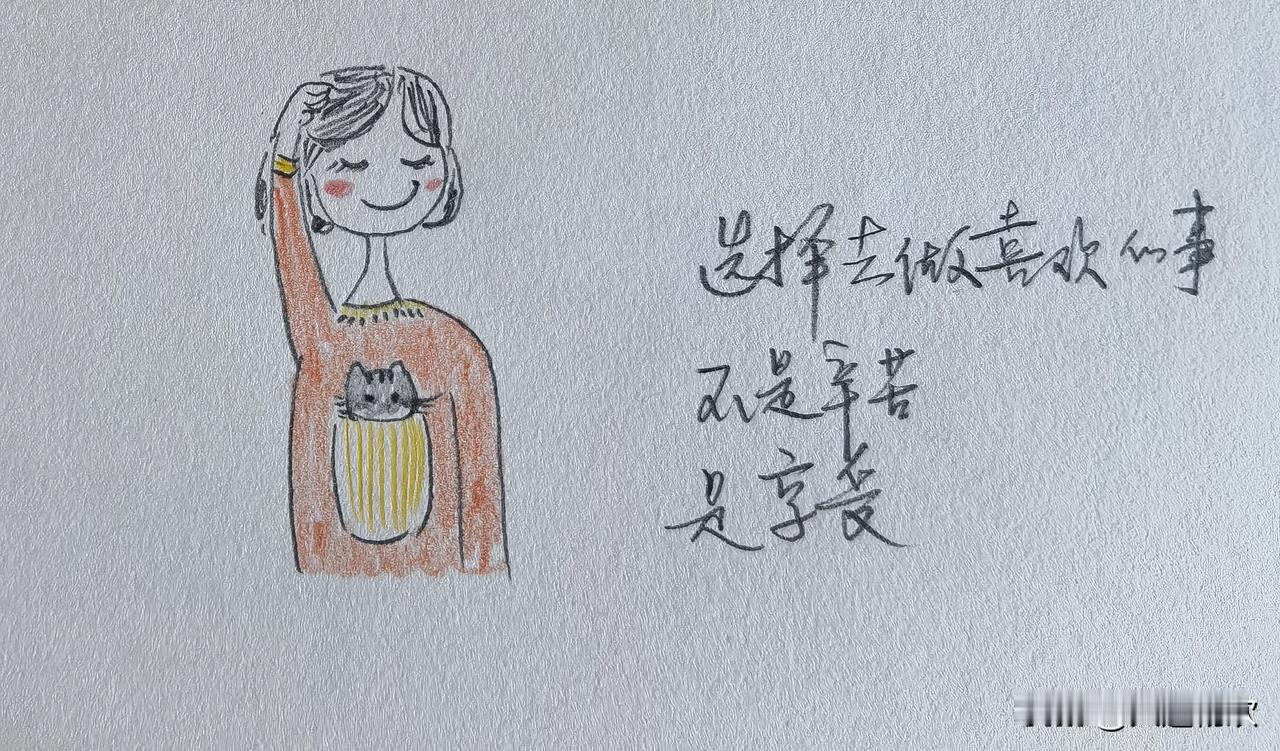 选择去做喜欢的事
不是辛苦
是享受